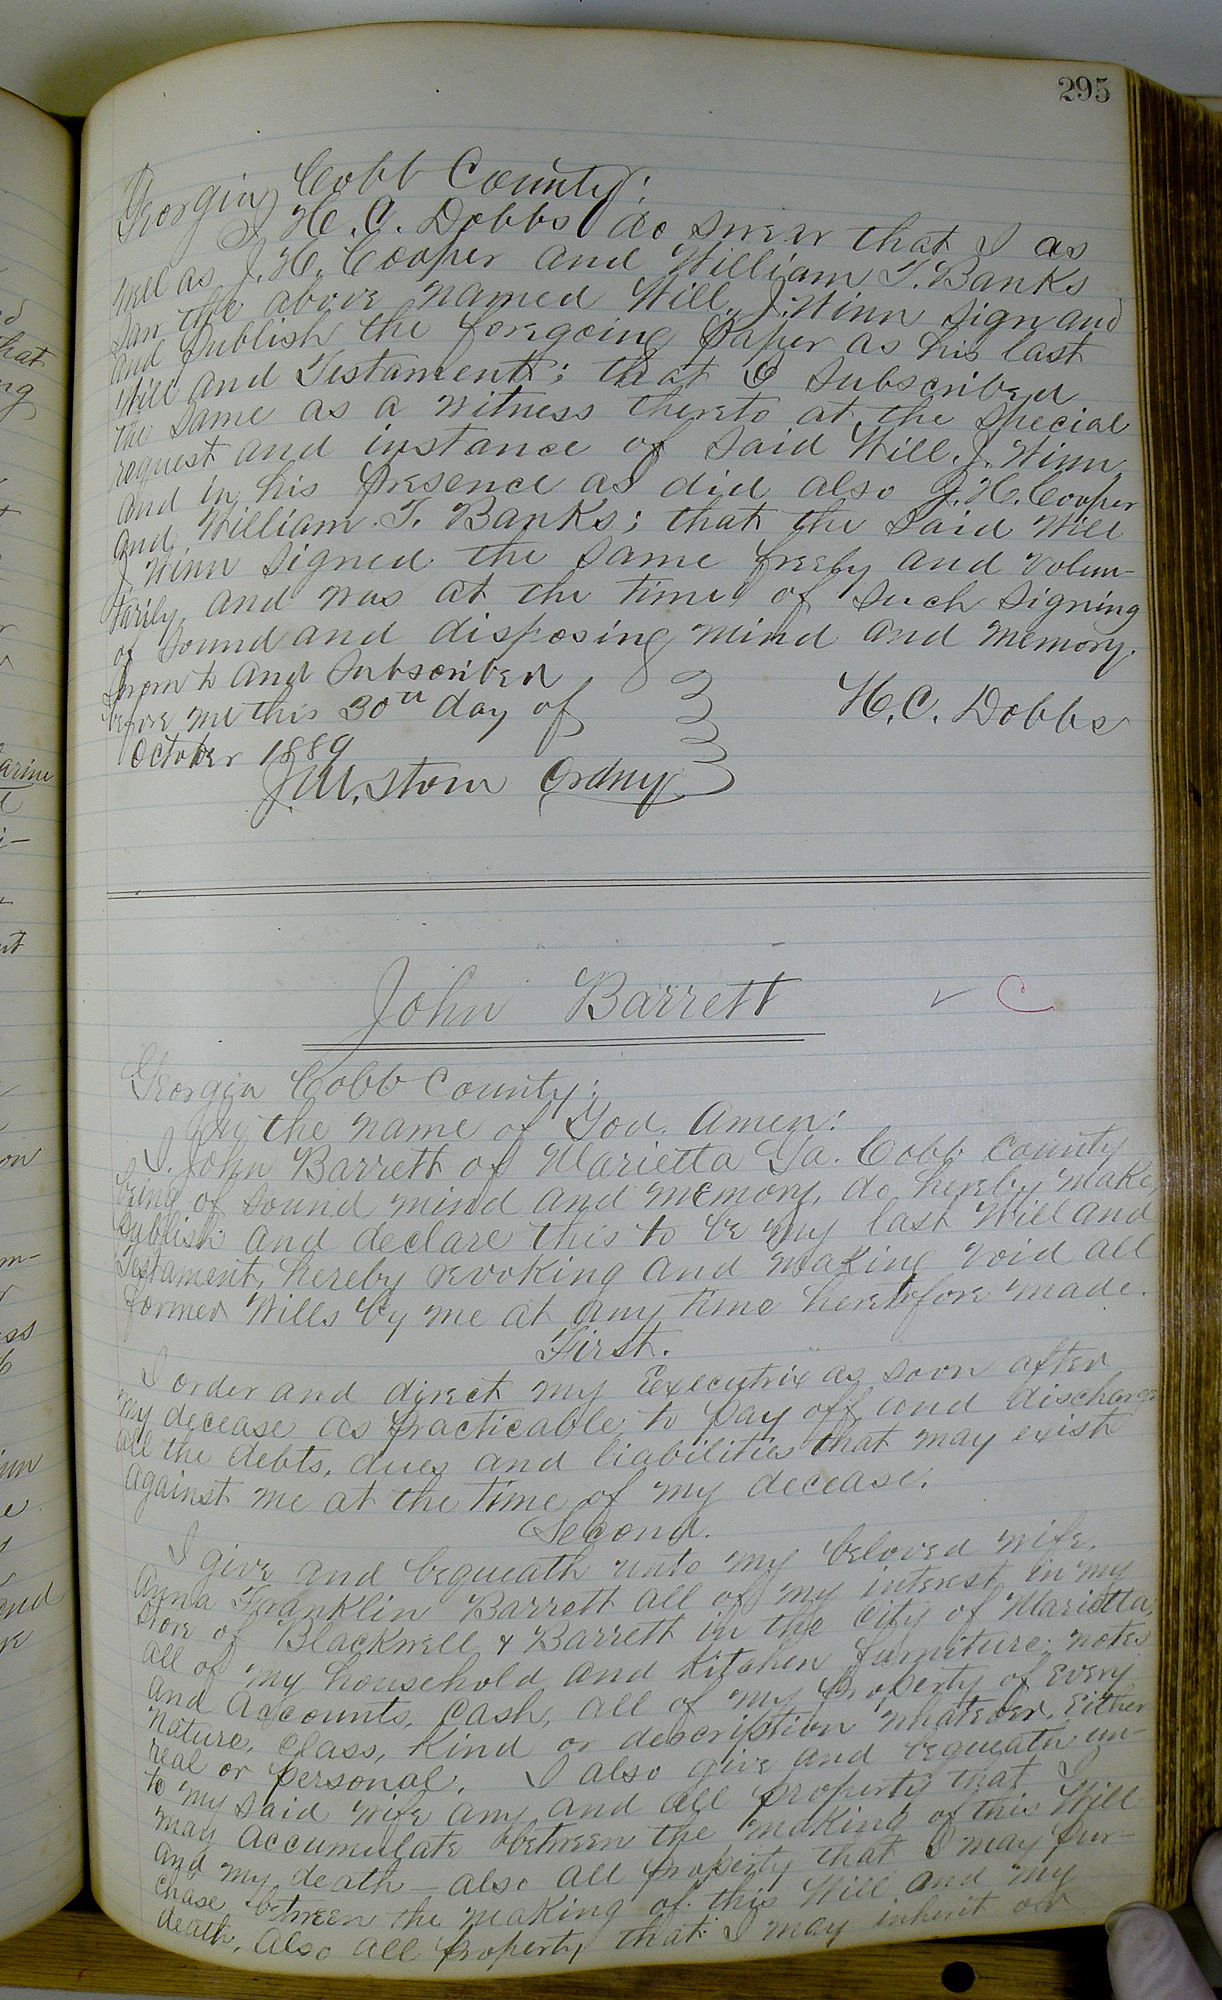 295
Georgia, Cobb County:
I H. C. Dobbs do swear that I as
well as J. H. Cooper and William T. Banks
saw the above named Will. J. Winn sign and
and publish the foregoing Paper as his last
Will and Testament; that I subscribed
the same as a witness thereto at the special
request and instance of said Will. J. Winn
and in his presence as did also J. H. Cooper
and William T. Banks; that the said Will
J Winn signed the same freely and volun-
tarily, and was at the time of such signing
of sound and disposing mind and memory.
Sworn to and subscribed
before me this 30th day of
October 1889
H. C. Dobbs
J. M. Stone Ordny
John Barrett
✓ C
Georgia Cobb County:
In the name of God. Amen:
I. John Barrett of Marietta Ga. Cobb County
being of sound mind and memory, do hereby make,
publish and declare this to be my last Will and
Testament, hereby revoking and making void all
former Wills by me at any time heretofore made.
First.
I order and direct my Executrix as soon after
my decease as practicable to pay off and discharge
all the debts, dues and liabilities that may exist
against me at the time of my decease.
Second.
I give and bequeath unto my beloved wife,
Anna Franklin Barrett all of my interest in my
store of Blackwell & Barrett in the City of Marietta,
all of my household and kitchen furniture, notes
and accounts, cash, all of my property of every
nature, class, kind or description whatever, either
real or personal. I also give and bequeath un-
to my said wife any and all property that I
may accumulate between the making of this Will
and my death – also all property that I may pur-
chase between the making of this Will and my
death, also all property that I may inherit or